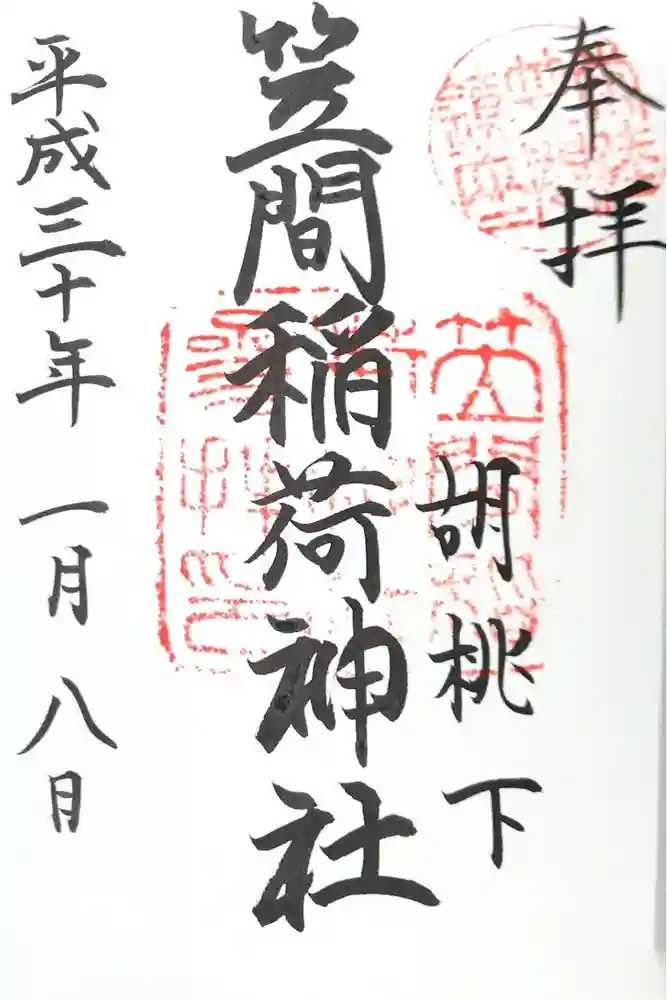 奉拝
胡桃下
笠間稲荷神社
平成三十年一月八日